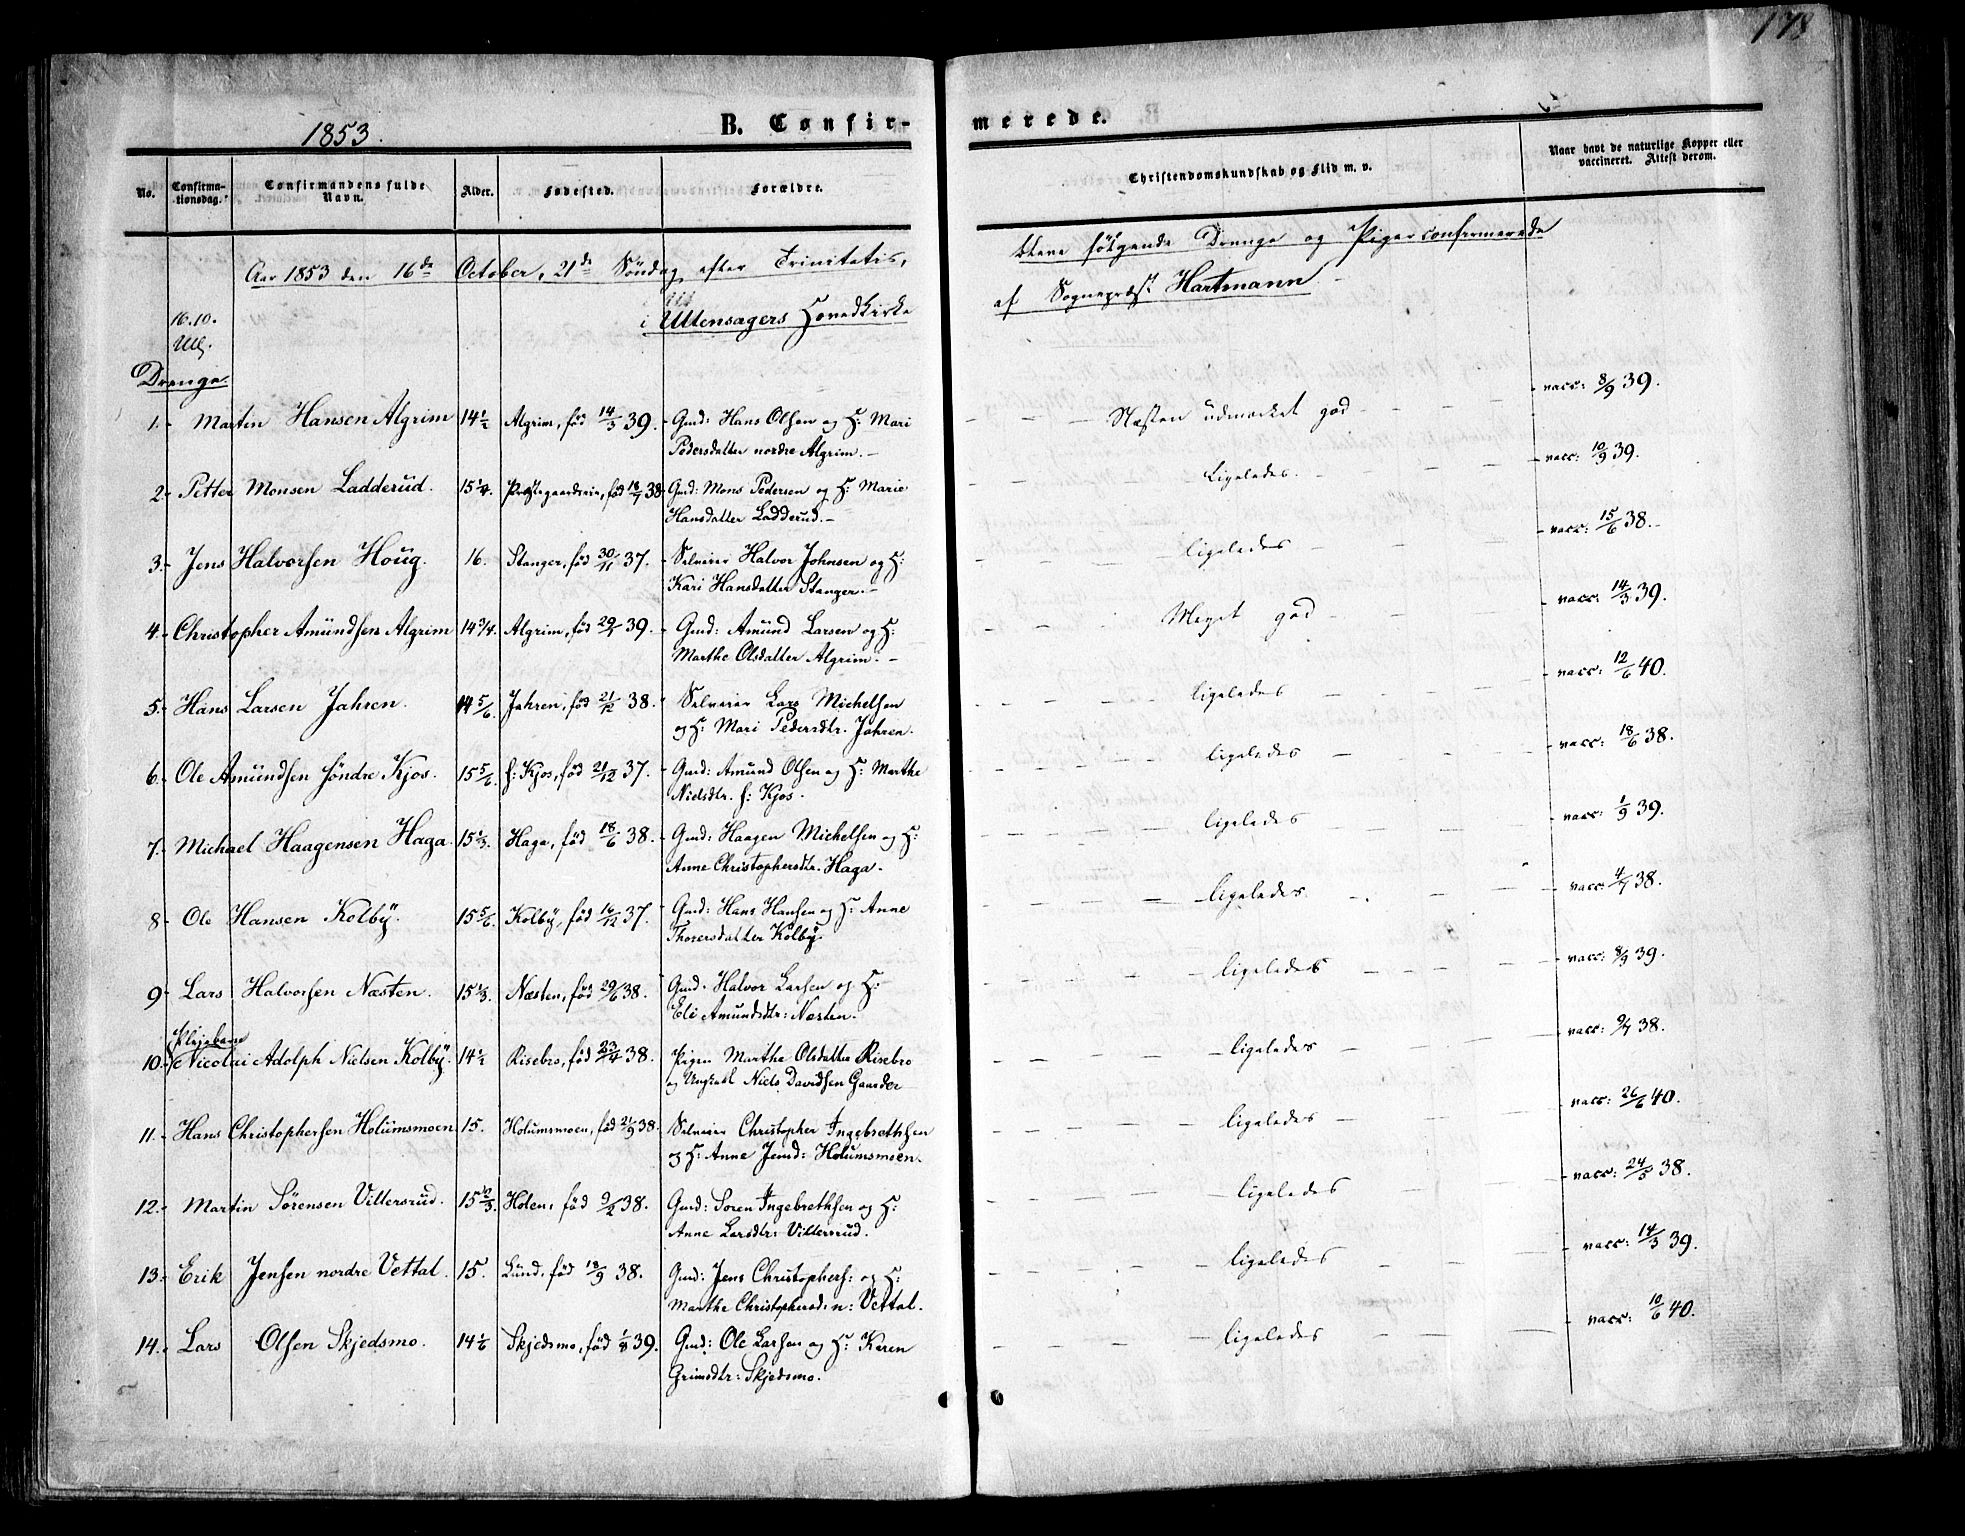 178
1853.
B. Confirmerede.
No. Confirmationsdag. Confirmandens fulde Navn. Alder. Fødested. Forældre. Christendomskundskab og Flid m. v. Naar havt de naturlige Kopper eller vaccineret. Attest derom.
Aar 1853 den 16de October, 21de Söndag efter Trinitatis, bleve følgende Drenge og Piger confirmerede
16.10. i Ullensagers Hovedkirke af Sognepræst Hartmann
Ull.
Drenge.
1. Martin Hansen Algrim 14 1/2 Algrim, fød 14/3 39. Gmd: Hans Olsen og H: Mari Næsten udmærket god vacc: 8/9 39.
Pedersdatter nordre Algrim.
2. Petter Monsen Ladderud. 15 1/4. Præstegaardseie, fød 18/7 38 Gmd: Mons Pedersen og H: Marie Ligeledes. vacc: 10/9 39.
Hansdatter Ladderud.
3. Jens Halvorsen Houg. 16. Stanger, fød 30/11 37. Selveier Halvor Johnsen og H: ligeledes vacc: 15/6 38.
Kari Hansdatter Stanger.
4. Christopher Amündsen Algrim 14 3/4. Algrim, fød 29/1 39. Gmd: Amünd Larsen og H: Meget god vacc: 14/3 39.
Marthe Olsdatter Algrim.
5. Hans Larsen Jahren. 14 5/6. Jahren, fød 21/12 38. Selveier Lars Michelsen ligeledes vacc: 12/6 40.
og H: Mari Pedersdtr. Jahren.
6. Ole Amündsen söndre Kjos. 15 5/6. s: Kjos, fød 21/12 37. Gmd: Amund Olsen og H: Marthe ligeledes vacc: 18/6 38.
Nielsdtr. s: Kjos.
7. Michael Haagensen Haga. 15 1/3. Haga, fød 18/6 38. Gmd: Haagen Michelsen og H: ligeledes vacc: 1/9 39.
Anne Christophersdtr. Haga.
8 Ole Hansen Kolbÿ. 15 5/6. Kolby, fød 16/12 37. Gmd: Hans Hansen og H: Anne ligeledes vacc: 4/7 38.
Thorersdatter Kolbÿ
9 Lars Halvorsen Næsten. 15 1/3. Næsten, fød 29/6 38. Gmd. Halvor Larsen og H: ligeledes vacc: 8/9 39.
Eli Amundsdtr: Næsten.
Plejebarn
10. Nicolai Adolph Nielsen Kolbÿ. 14 1/2 Risebro, fød 23/4 38. Pigen Marthe Olsdatter Risebro ligeledes vacc: 9/7 38.
og Ungkarl Niels Davidsen Gaarder
11. Hans Christophersen Holümsmoen 15. Holumsmoen, fød 21/9 38. Selveier Christopher Ingebrethsen ligeledes vacc: 26/6 40.
og H: Anne Jensd: Holumsmoen.
12. Martin Sörensen Villersrüd. 15 2/3. Holen, fød 9/2 38. Gmd: Soren Ingebrethsen og H: ligeledes vacc: 24/5 38.
Anne Larsdtr: Villersrud.
13. Erik Jensen nordre Vettal. 15. Lünd, fød 18/9 38. Gmd: Jens Christophers: og H: ligeledes vacc: 14/3 39.
Marthe Christophersd: n: Vettal.
14. Lars Olsen Skjedsmo. 14 1/6 Skjedsmo, fød 1/8 39. Gmd: Ole Larsen og H: Karen ligeledes vacc: 10/6 40.
Grimsdtr: Skjedsmo.